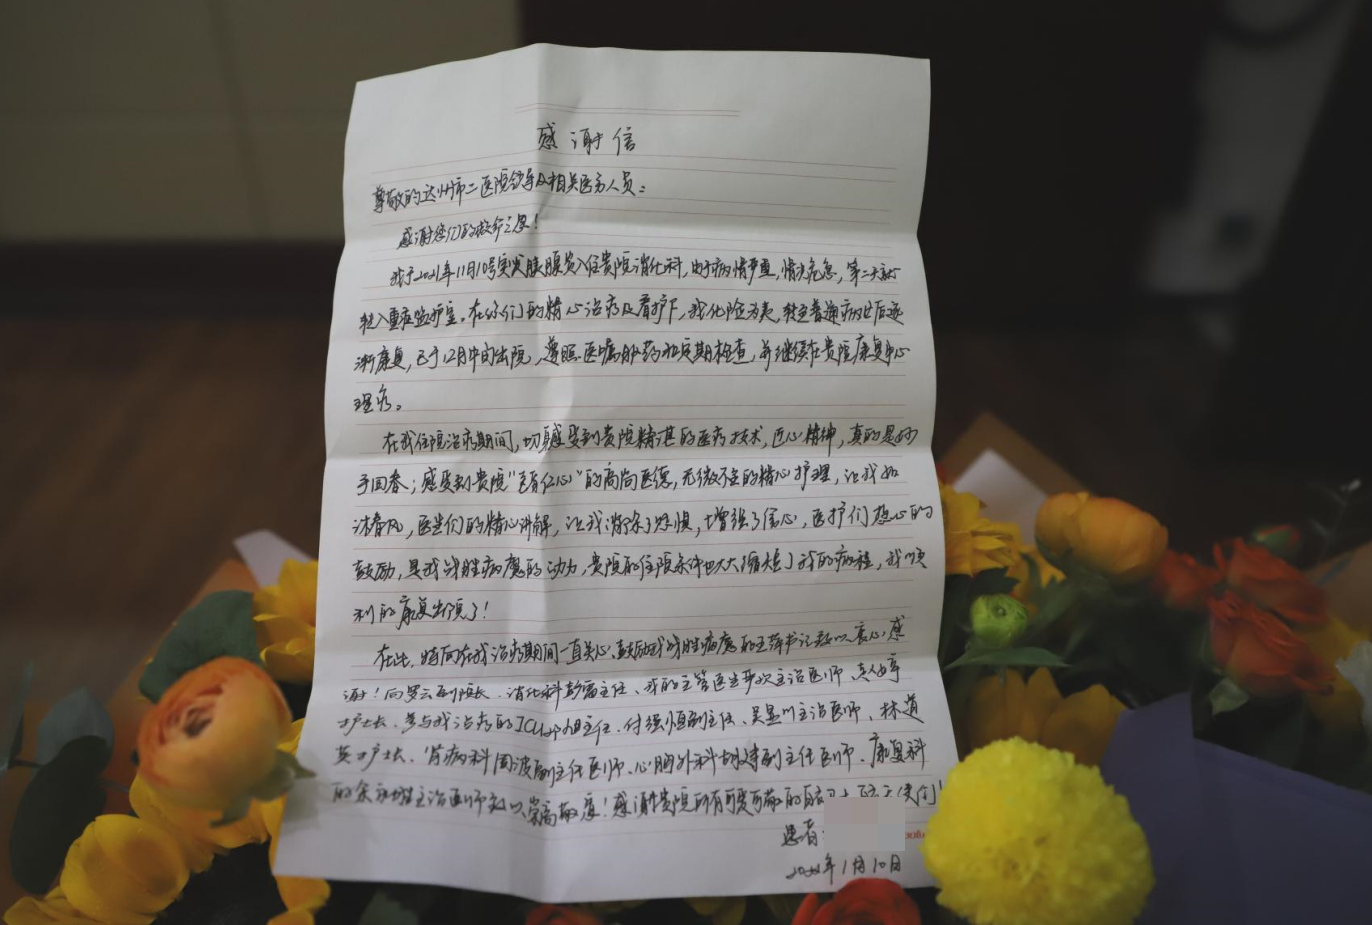 感谢信
尊敬的达州市二医院领导及相关医务人员：
感谢您们的救命之恩！
我于2021年11月10号突发胰腺炎入住贵院消化科，由于病情严重，情况危急，第二天就
转入重症监护室。在你们的精心治疗及看护下，我化险为夷，转至普通病房后逐
渐康复，已于12月中旬出院，遵照医嘱服药和定期检查，并继续在贵院康复中心
理疗。
在我住院治疗期间，切身感受到贵院精湛的医疗技术，匠心精神，真的是妙
手回春；感受到贵院“医者仁心”的高尚医德，无微不至的精心护理，让我如
沐春风，医生们的精心讲解，让我消除了恐惧，增强了信心，医护们热心的
鼓励，是我战胜病魔的动力，贵院的住院条件也大大缩短了我的病程，我顺
利的康复出院了！
在此，特向在我治疗期间一直关心、鼓励我战胜病魔的王萍书记致以衷心感
谢！向罗云副院长、消化科彭雷主任、我的主管医生 主治医师、
护士长、参与我治病的ICU 主任、付强恒副主任、吴显川主治医师、林道
英护士长、肾病科周波副主任医师、心胸外科胡 副主任医师、康复科
的余 主治医师致以崇高敬意！感谢贵院所有可爱可敬的 天使们！
患者：
2022年1月10日